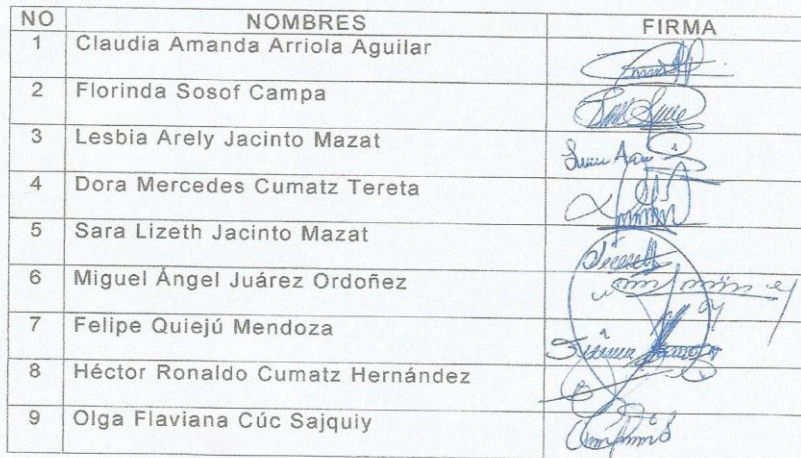 NO NOMBRES FIRMA
1 Claudia Amanda Arriola Aguilar
2 Florinda Sosof Campa
3 Lesbia Arely Jacinto Mazat
4 Dora Mercedes Cumatz Tereta
5 Sara Lizeth Jacinto Mazat
6 Miguel Ángel Juárez Ordoñez
7 Felipe Quiejú Mendoza
8 Héctor Ronaldo Cumatz Hernández
9 Olga Flaviana Cúc Sajquiy